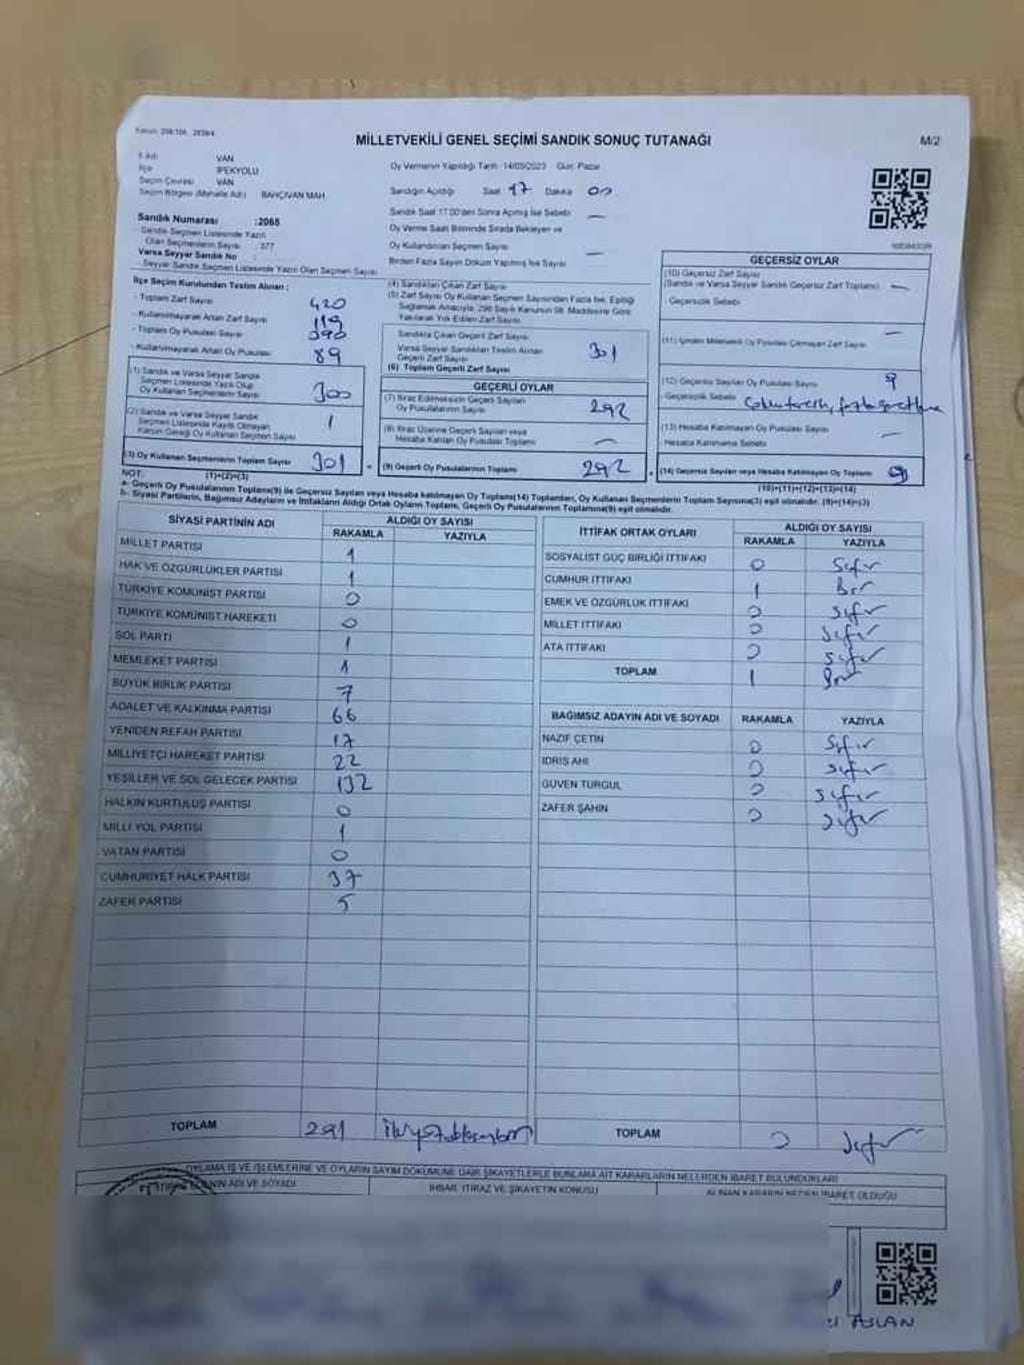 Kanun: 298/106, 2839/4
MİLLETVEKİLİ GENEL SEÇİMİ SANDIK SONUÇ TUTANAĞI
M/2
İl Adı VAN
İlçe İPEKYOLU
Seçim Çevresi VAN
Seçim Bölgesi (Mahalle Adı) BAHÇIVAN MAH
Sandık Numarası :2065
Sandık Seçmen Listesinde Yazılı
Olan Seçmenlerin Sayısı 377
Varsa Seyyar Sandık No
Seyyar Sandık Seçmen Listesinde Yazılı Olan Seçmen Sayısı
Oy Vermenin Yapıldığı Tarih: 14/05/2023 Gün: Pazar
Sandığın Açıldığı Saat 17 Dakika 00
Sandık Saat 17.00'den Sonra Açılmış İse Sebebi —
Oy Verme Saati Bitiminde Sırada Bekleyen ve
Oy Kullandırılan Seçmen Sayısı —
Birden Fazla Sayım Döküm Yapılmış İse Sayısı
İlçe Seçim Kurulundan Teslim Alınan :
- Toplam Zarf Sayısı 420
- Kullanılmayarak Artan Zarf Sayısı 119
- Toplam Oy Pusulası Sayısı 390
- Kullanılmayarak Artan Oy Pusulası 89
(1) Sandık ve Varsa Seyyar Sandık
Seçmen Listesinde Yazılı Olup
Oy Kullanan Seçmenlerin Sayısı 300
(2) Sandık ve Varsa Seyyar Sandık
Seçmen Listesinde Kayıtlı Olmayan
Kanun Gereği Oy Kullanan Seçmen Sayısı 1
(3) Oy Kullanan Seçmenlerin Toplam Sayısı 301
(1)+(2)=(3)
(4) Sandıktan Çıkan Zarf Sayısı
(5) Zarf Sayısı Oy Kullanan Seçmen Sayısından Fazla İse, Eşitliği
Sağlamak Amacıyla, 298 Sayılı Kanunun 98. Maddesine Göre
Yakılarak Yok Edilen Zarf Sayısı
Sandıkta Çıkan Geçerli Zarf Sayısı
Varsa Seyyar Sandıktan Teslim Alınan
Geçerli Zarf Sayısı 301
(6) Toplam Geçerli Zarf Sayısı
GEÇERLİ OYLAR
(7) İtiraz Edilmeksizin Geçerli Sayılan
Oy Pusulalarının Sayısı 292
(8) İtiraz Üzerine Geçerli Sayılan veya
Hesaba Katılan Oy Pusulası Toplamı —
(9) Geçerli Oy Pusulalarının Toplamı 292
GEÇERSİZ OYLAR
(10) Geçersiz Zarf Sayısı
(Sandık ve Varsa Seyyar Sandık Geçersiz Zarf Toplamı) —
- Geçersizlik Sebebi
(11) İçinden Milletvekili Oy Pusulası Çıkmayan Zarf Sayısı —
(12) Geçersiz Sayılan Oy Pusulası Sayısı 9
- Geçersizlik Sebebi
(13) Hesaba Katılmayan Oy Pusulası Sayısı —
Hesaba Katılmama Sebebi
(14) Geçersiz Sayılan veya Hesaba Katılmayan Oy Toplamı 9
(10)+(11)+(12)+(13)=(14)
NOT:
a- Geçerli Oy Pusulalarının Toplamı(9) ile Geçersiz Sayılan veya Hesaba katılmayan Oy Toplamı(14) Toplamları, Oy Kullanan Seçmenlerin Toplam Sayısına(3) eşit olmalıdır. (9)+(14)=(3)
b- Siyasi Partilerin, Bağımsız Adayların ve İttifakların Aldığı Ortak Oyların Toplamı, Geçerli Oy Pusulalarının Toplamına(9) eşit olmalıdır.
SİYASİ PARTİNİN ADI ALDIĞI OY SAYISI
RAKAMLA YAZIYLA
MİLLET PARTİSİ 1
HAK VE ÖZGÜRLÜKLER PARTİSİ 1
TÜRKİYE KOMÜNİST PARTİSİ 0
TÜRKİYE KOMÜNİST HAREKETİ 0
SOL PARTİ 1
MEMLEKET PARTİSİ 1
BÜYÜK BİRLİK PARTİSİ 7
ADALET VE KALKINMA PARTİSİ 66
YENİDEN REFAH PARTİSİ 17
MİLLİYETÇİ HAREKET PARTİSİ 22
YEŞİLLER VE SOL GELECEK PARTİSİ 132
HALKIN KURTULUŞ PARTİSİ 0
MİLLİ YOL PARTİSİ 1
VATAN PARTİSİ 0
CUMHURİYET HALK PARTİSİ 37
ZAFER PARTİSİ 5
TOPLAM 291
İTTİFAK ORTAK OYLARI ALDIĞI OY SAYISI
RAKAMLA YAZIYLA
SOSYALİST GÜÇ BİRLİĞİ İTTİFAKI 0 Sıfır
CUMHUR İTTİFAKI 1 Bir
EMEK VE ÖZGÜRLÜK İTTİFAKI 0 Sıfır
MİLLET İTTİFAKI 0 Sıfır
ATA İTTİFAKI 0 Sıfır
TOPLAM 1 Bir
BAĞIMSIZ ADAYIN ADI VE SOYADI RAKAMLA YAZIYLA
NAZİF ÇETİN 0 Sıfır
İDRİS AHİ 0 Sıfır
GÜVEN TURGUL 0 Sıfır
ZAFER ŞAHİN 0 Sıfır
TOPLAM 0 Sıfır
OYLAMA İŞ VE İŞLEMLERİNE VE OYLARIN SAYIM DÖKÜMÜNE DAİR ŞİKAYETLERLE BUNLARA AİT KARARLARIN NELERDEN İBARET BULUNDUKLARI
ADI VE SOYADI İHBAR, İTİRAZ VE ŞİKAYETİN KONUSU ALINAN KARARIN NEDEN İBARET OLDUĞU
ASLAN